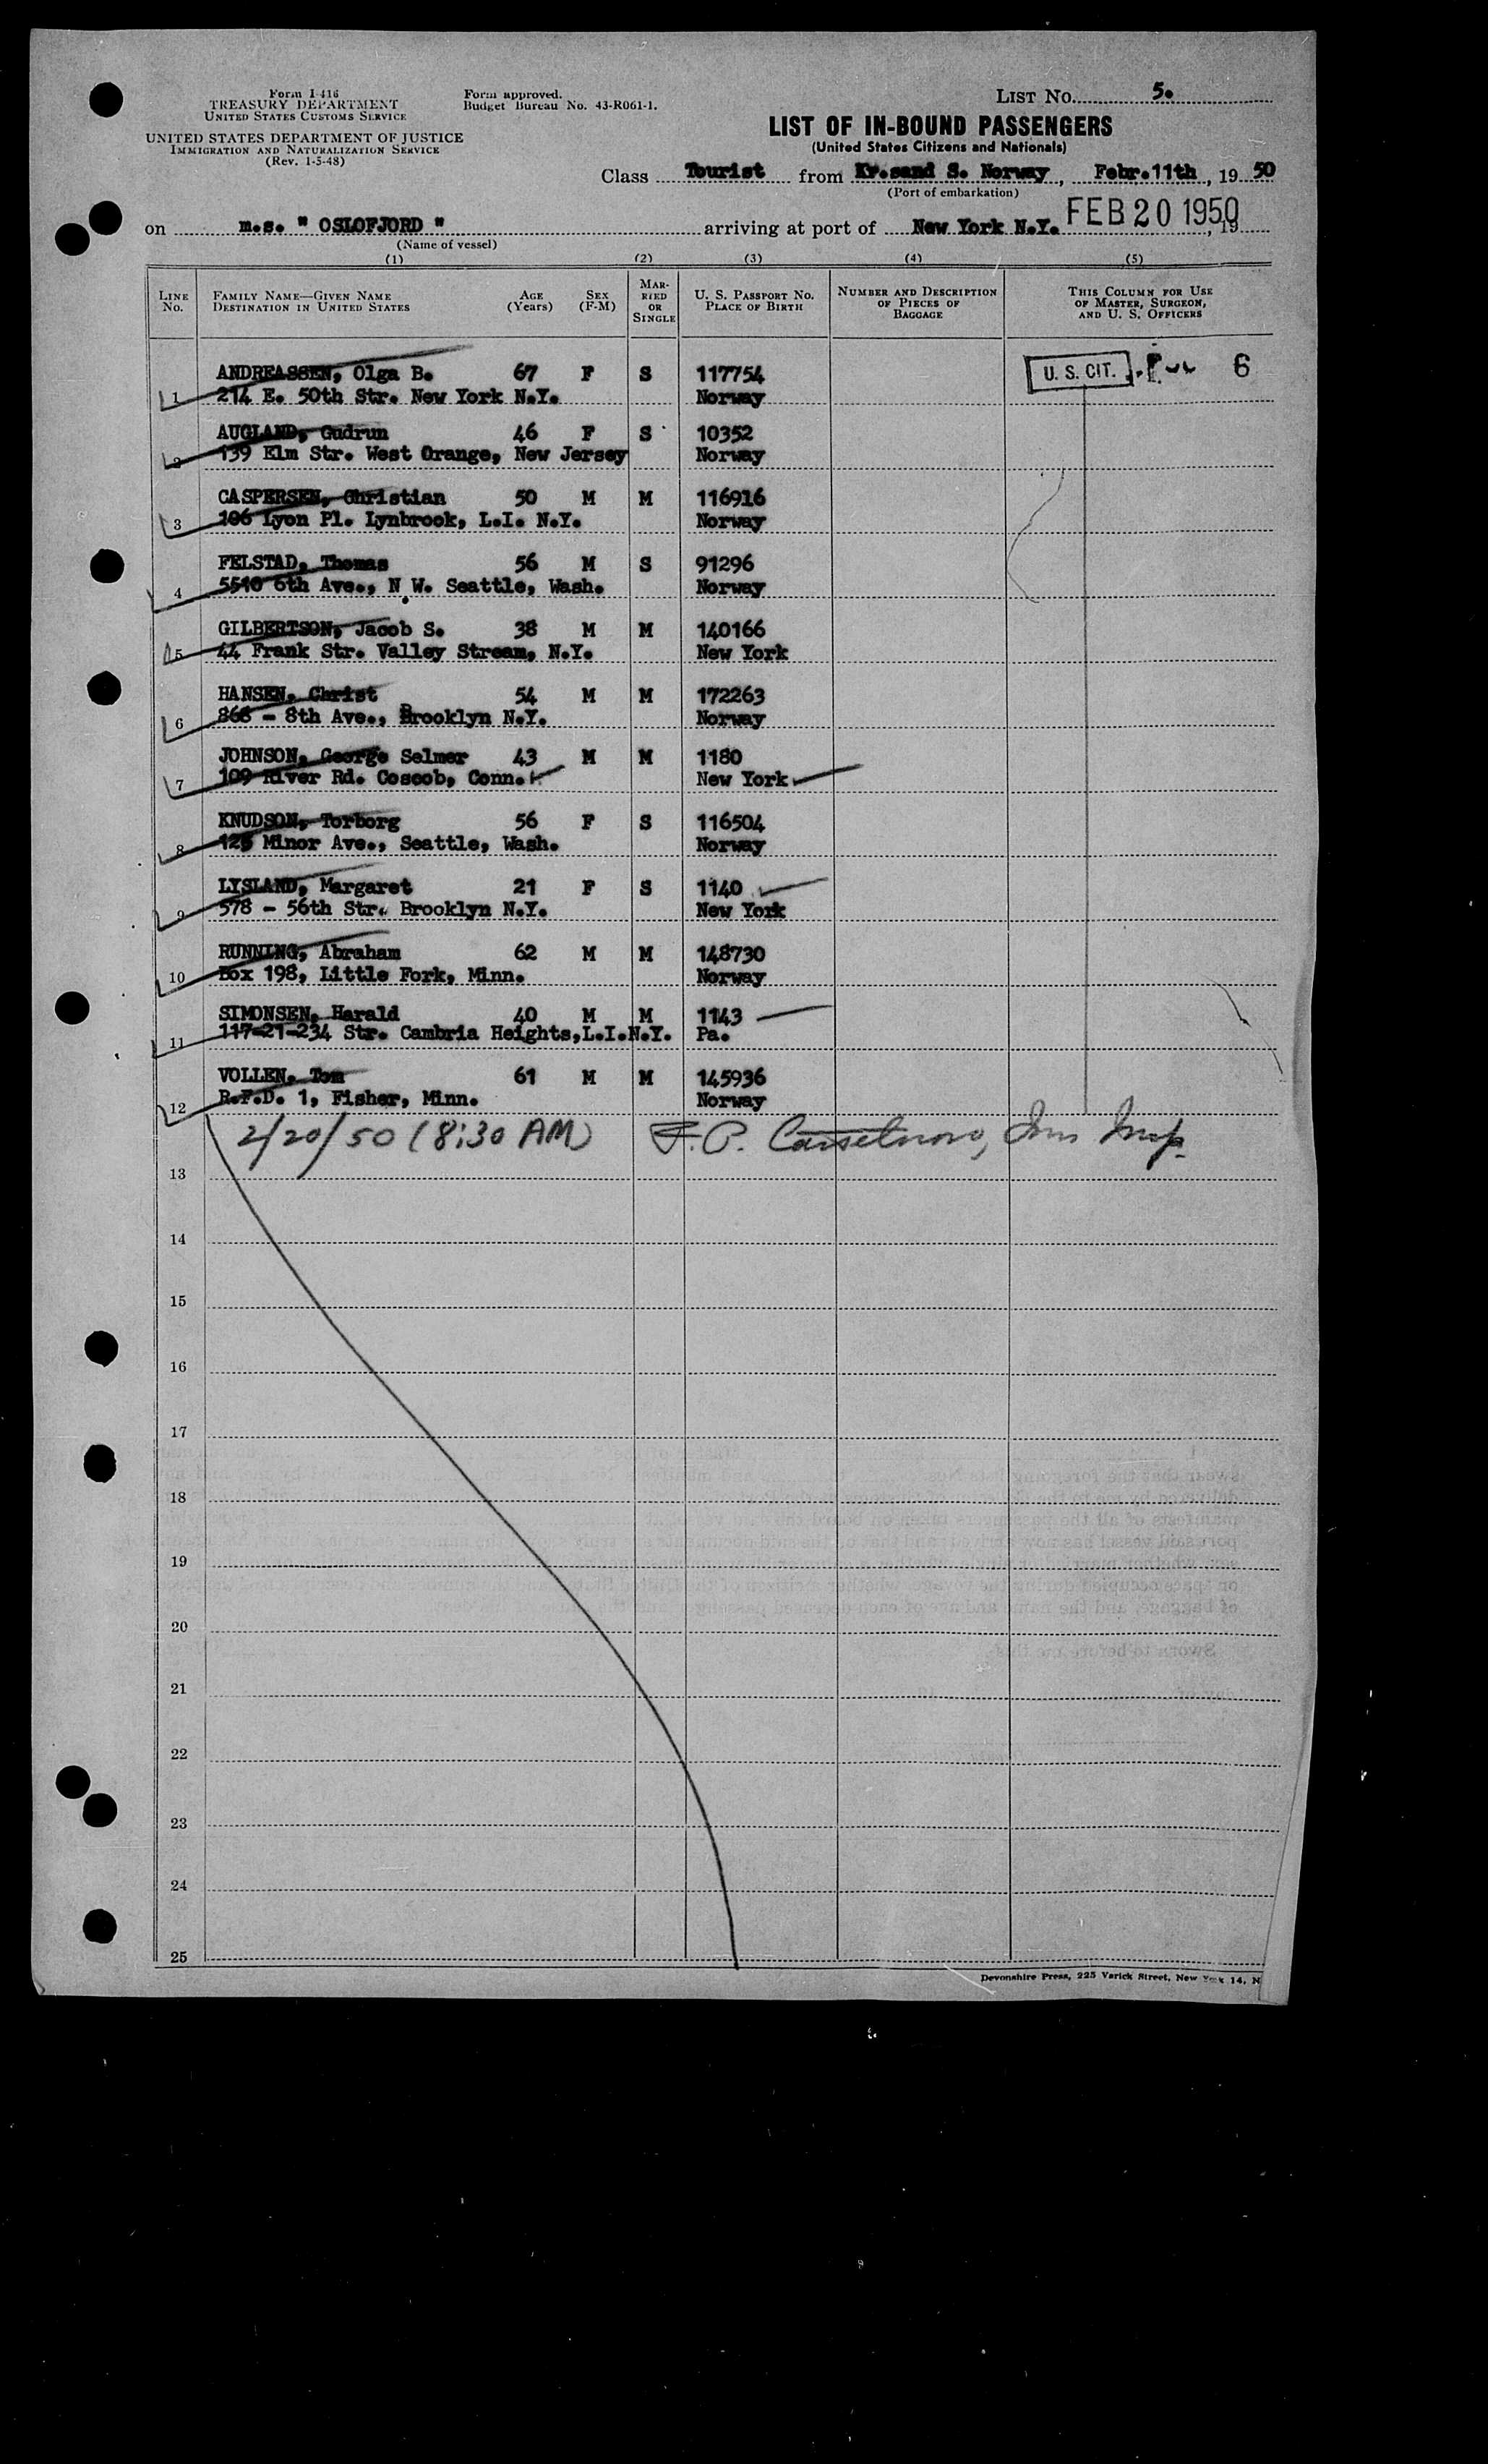 Form I-416
TREASURY DEPARTMENT
UNITED STATES CUSTOMS SERVICE
UNITED STATES DEPARTMENT OF JUSTICE
IMMIGRATION AND NATURALIZATION SERVICE
(Rev. 1-5-48)
Form approved.
Budget Bureau No. 43-R061-1.
LIST No. 5.
LIST OF IN-BOUND PASSENGERS
(United States Citizens and Nationals)
Class Tourist from Kr.sand S. Norway, Febr.11th, 19 50
(Port of embarkation)
on m.s. " OSLOFJORD " arriving at port of New York N.Y. FEB 20 1950, 19
(Name of vessel)
(1) (2) (3) (4) (5)
LINE No. FAMILY NAME—GIVEN NAME DESTINATION IN UNITED STATES AGE (Years) SEX (F-M) MARRIED OR SINGLE U. S. PASSPORT NO. PLACE OF BIRTH NUMBER AND DESCRIPTION OF PIECES OF BAGGAGE THIS COLUMN FOR USE OF MASTER, SURGEON, AND U. S. OFFICERS
ANDREASSEN, Olga B. 67 F S 117754 U. S. CIT. 6
1 214 E. 50th Str. New York N.Y. Norway
AUGLAND, Gudrun 46 F S 10352
2 139 Elm Str. West Orange, New Jersey Norway
CASPERSEN, Christian 50 M M 116916
3 106 Lyon Pl. Lynbrook, L.I. N.Y. Norway
FELSTAD, Thomas 56 M S 91296
4 5510 6th Ave., N.W. Seattle, Wash. Norway
GILBERTSON, Jacob S. 38 M M 140166
5 44 Frank Str. Valley Stream, N.Y. New York
HANSEN, Christ 54 M M 172263
6 868 - 8th Ave., Brooklyn N.Y. Norway
JOHNSON, George Selmer 43 M M 1180
7 109 River Rd. Coscob, Conn. New York
KNUDSON, Torborg 56 F S 116504
8 Minor Ave., Seattle, Wash. Norway
LYSLAND, Margaret 21 F S 1140
9 578 - 56th Str. Brooklyn N.Y. New York
RUNNING, Abraham 62 M M 148730
10 Box 198, Little Fork, Minn. Norway
SIMONSEN, Harald 40 M M 1143
11 117-21-234 Str. Cambria Heights,L.I.N.Y. Pa.
VOLLEN, Tom 61 M M 145936
12 R.F.D. 1, Fisher, Minn. Norway
2/20/50 (8:30 AM) F.P.
13
14
15
16
17
18
19
20
21
22
23
24
25
Devonshire Press, 225 Varick Street, New York 14, N